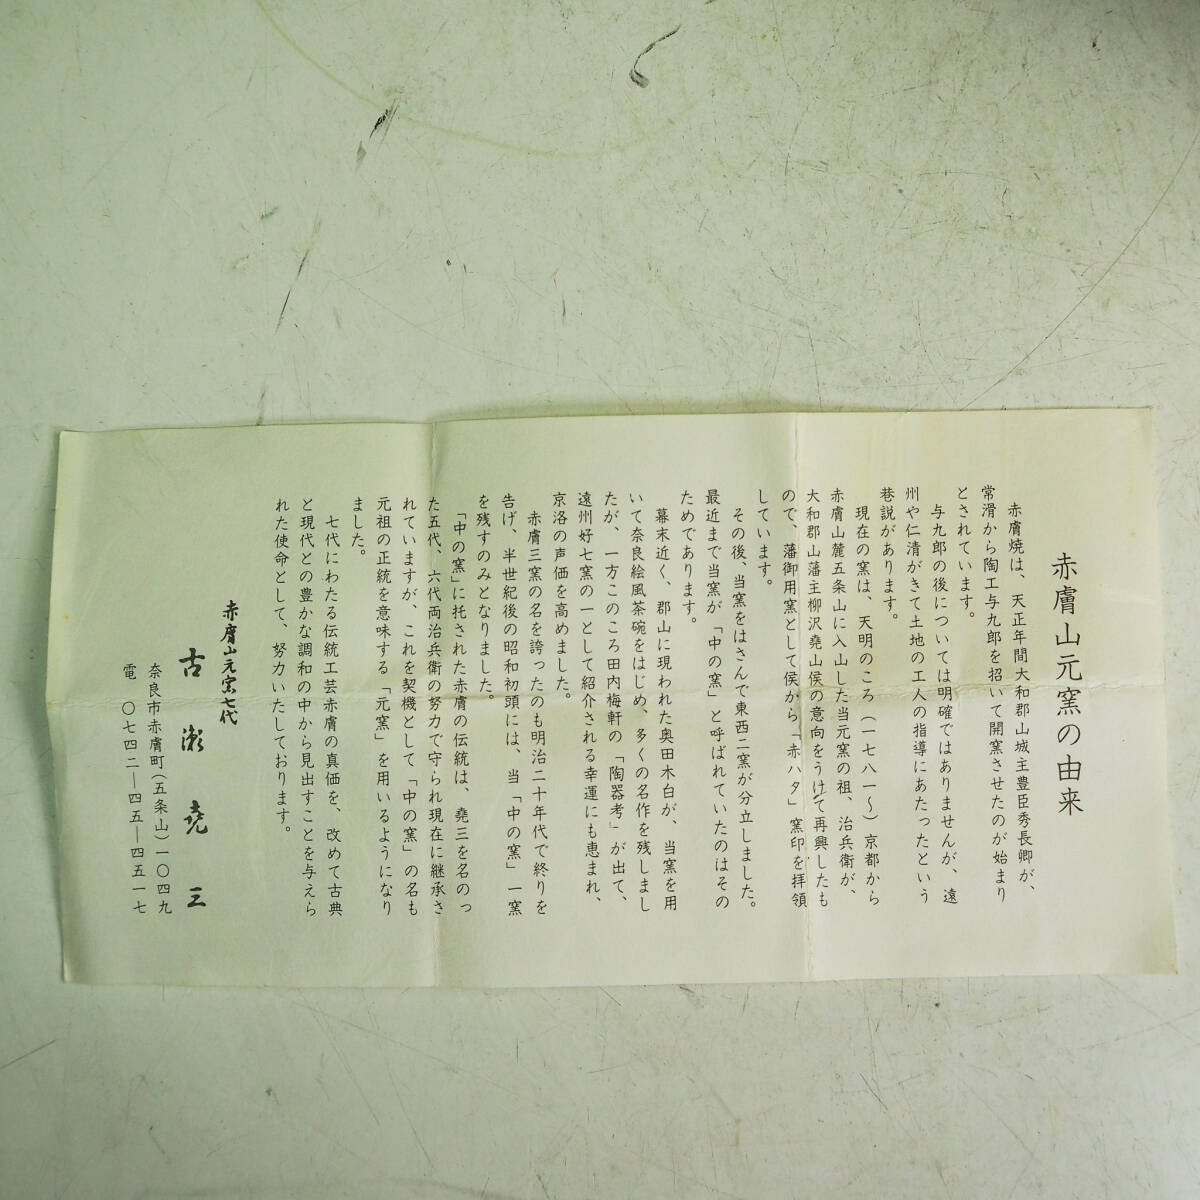 赤膚山元窯の由来
赤膚焼は、天正年間大和郡山城主豊臣秀長卿が、
常滑から陶工与九郎を招いて開窯させたのが始まり
とされています。
与九郎の後については明確ではありませんが、遠
州や仁清がきて土地の工人の指導にあたったという
巷説があります。
現在の窯は、天明のころ(一七八一〜)京都から
赤膚山麓五条山に入山した当元窯の祖、治兵衛が、
大和郡山藩主柳沢堯山侯の意向をうけて再興したも
ので、藩御用窯として侯から「赤ハタ」窯印を拝領
しています。
その後、当窯をはさんで東西二窯が分立しました。
最近まで当窯が「中の窯」と呼ばれていたのはその
ためであります。
幕末近く、郡山に現われた奥田木白が、当窯を用
いて奈良絵風茶碗をはじめ、多くの名作を残しまし
たが、一方このころ田内梅軒の「陶器考」が出て、
遠州好七窯の一として紹介される幸運にも恵まれ、
京洛の声価を高めました。
赤膚三窯の名を誇ったのも明治二十年代で終りを
告げ、半世紀後の昭和初頭には、当「中の窯」一窯
を残すのみとなりました。
「中の窯」に托された赤膚の伝統は、堯三を名のっ
た五代、六代両治兵衛の努力で守られ現在に継承さ
れていますが、これを契機として「中の窯」の名も
元祖の正統を意味する「元窯」を用いるようになり
ました。
七代にわたる伝統工芸赤膚の真価を、改めて古典
と現代との豊かな調和の中から見出すことを与えら
れた使命として、努力いたしております。
赤膚山元窯七代
古瀬堯三
奈良市赤膚町(五条山)一〇四九
電 〇七四二―四五―四五一七